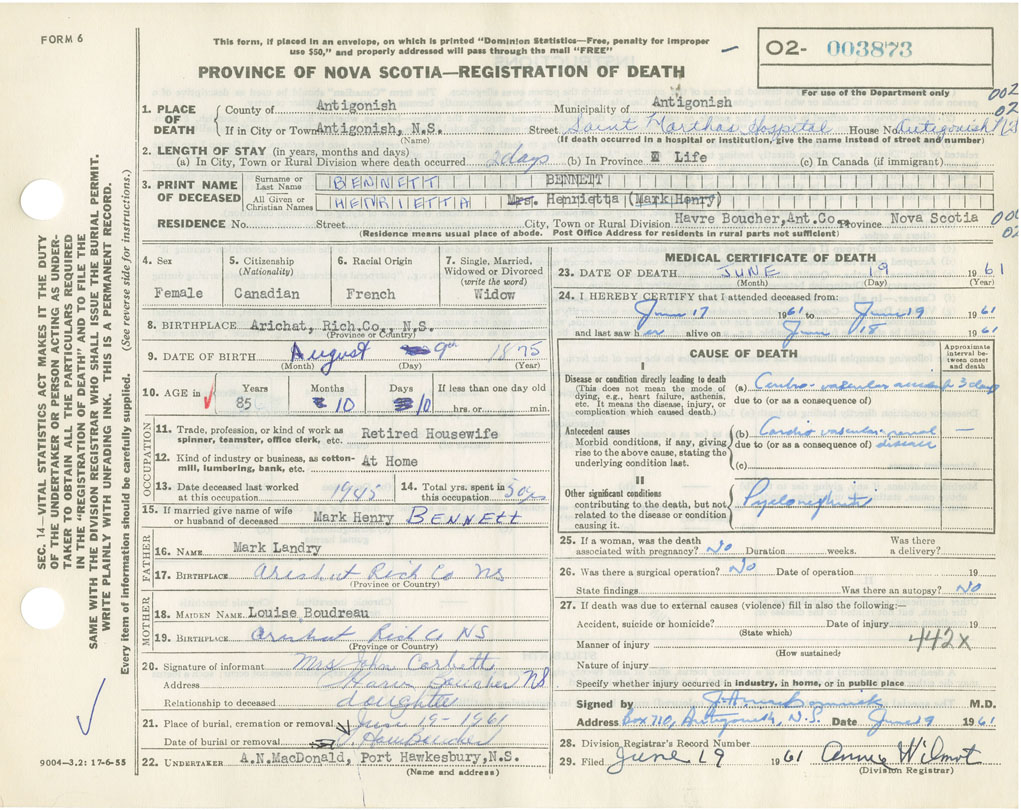 FORM 6
This form, if placed in an envelope, on which is printed "Dominion Statistics—Free, penalty for improper
use $50," and properly addressed will pass through the mail "FREE"
O2- 003873
For use of the Department only
PROVINCE OF NOVA SCOTIA—REGISTRATION OF DEATH
002
02
1. PLACE OF DEATH
County of Antigonish Municipality of Antigonish
If in City or Town Antigonish, N.S. Street Saint Marthas Hospital House No. Antigonish NS
(Name) (If death occurred in a hospital or institution, give the name instead of street and number)
2. LENGTH OF STAY (in years, months and days)
(a) In City, Town or Rural Division where death occurred 2 days (b) In Province Life (c) In Canada (if immigrant)
3. PRINT NAME OF DECEASED
Surname or Last Name BENNETT BENNETT
All Given or Christian Names HENRIETTA Mrs. Henrietta (Mark Henry)
RESIDENCE No. Street City, Town or Rural Division Havre Boucher, Ant.Co. Province Nova Scotia
(Residence means usual place of abode. Post Office Address for residents in rural parts not sufficient)
4. Sex Female
5. Citizenship (Nationality) Canadian
6. Racial Origin French
7. Single, Married, Widowed or Divorced (write the word) Widow
8. BIRTHPLACE Arichat, Rich.Co., N.S.
(Province or Country)
9. DATE OF BIRTH August 9th 1875
(Month) (Day) (Year)
10. AGE in Years 85 Months 10 Days 10 If less than one day old hrs. or min.
OCCUPATION
11. Trade, profession, or kind of work as spinner, teamster, office clerk, etc. Retired Housewife
12. Kind of industry or business, as cotton-mill, lumbering, bank, etc. At Home
13. Date deceased last worked at this occupation 1945
14. Total yrs. spent in this occupation 50 yrs
15. If married give name of wife or husband of deceased Mark Henry BENNETT
FATHER
16. NAME Mark Landry
17. BIRTHPLACE Arichat Rich Co NS
(Province or Country)
MOTHER
18. MAIDEN NAME Louise Boudreau
19. BIRTHPLACE Arichat Rich Co NS
(Province or Country)
20. Signature of informant Mrs John Corbett
Address Havre Boucher NS
Relationship to deceased daughter
21. Place of burial, cremation or removal June 19-1961
Date of burial or removal
22. UNDERTAKER A.N.MacDonald, Port Hawkesbury, N.S.
(Name and address)
MEDICAL CERTIFICATE OF DEATH
23. DATE OF DEATH JUNE 19 1961
(Month) (Day) (Year)
24. I HEREBY CERTIFY that I attended deceased from:
June 17 1961 to June 19 1961
and last saw her alive on June 18 1961
CAUSE OF DEATH
Approximate interval between onset and death
I
Disease or condition directly leading to death
(This does not mean the mode of dying, e.g., heart failure, asthenia, etc. It means the disease, injury, or complication which caused death.)
(a) 3 days
due to (or as a consequence of)
Antecedent causes
Morbid conditions, if any, giving rise to the above cause, stating the underlying condition last.
(b) Cardio vascular renal —
due to (or as a consequence of) disease
(c)
II
Other significant conditions
contributing to the death, but not related to the disease or condition causing it.
25. If a woman, was the death associated with pregnancy? No Duration weeks. Was there a delivery?
26. Was there a surgical operation? No Date of operation 19
State findings Was there an autopsy? No
27. If death was due to external causes (violence) fill in also the following:—
Accident, suicide or homicide? Date of injury 19
(State which)
442X
Manner of injury
(How sustained)
Nature of injury
Specify whether injury occurred in industry, in home, or in public place
Signed by M.D.
Address Box 710, Antigonish, N.S. Date June 19 1961
28. Division Registrar's Record Number
29. Filed June 19 1961 Annie Wilmot
(Division Registrar)
SEC. 14—VITAL STATISTICS ACT MAKES IT THE DUTY
OF THE UNDERTAKER OR PERSON ACTING AS UNDER-
TAKER TO OBTAIN ALL THE PARTICULARS REQUIRED
IN THE "REGISTRATION OF DEATH" AND TO FILE THE
SAME WITH THE DIVISION REGISTRAR WHO SHALL ISSUE THE BURIAL PERMIT.
WRITE PLAINLY WITH UNFADING INK. THIS IS A PERMANENT RECORD.
Every item of information should be carefully supplied. (See reverse side for instructions.)
9004—3.2: 17-6-55